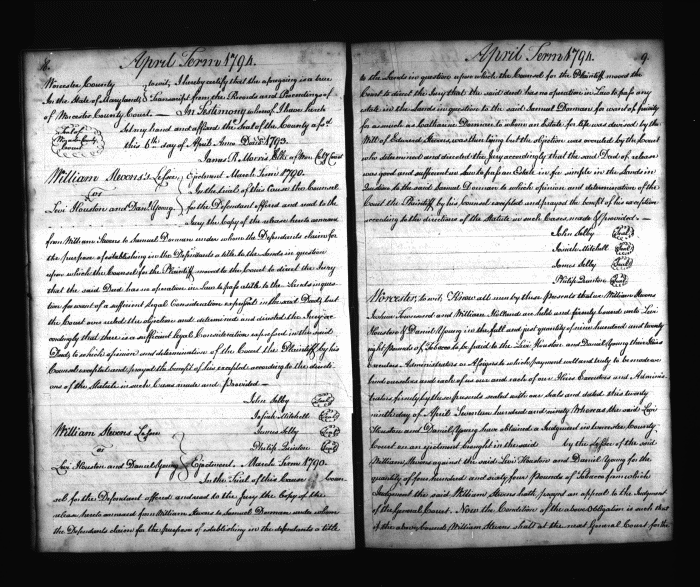 8. April Term 1794.
Worcester County
In the State of Maryland
to wit, I hereby certify that the aforegoing is a true
Transcript from the Records and Proceedings of
Worcester County Court. In Testimony whereof I have hereto
Set my hand and affixed the Seal of the County afst.
this 6th day of April Anno Dom. 1793.
Seal of Worcester County Court
James R. Morris Clk. of Wor. Cty. Court
William Stevens's Lessee
vs
Levi Houston and Danl. Young
Ejectment March Term 1790.
In the trial of this Cause the Counsel
for the Defendant offered and read to the
Jury the Copy of the release hereto annexed
from William Stevens to Samuel Dorman under whom the Defendants claim for
the purpose of establishing in the Defendants a title to the Lands in question
upon which the Counsel for the Plaintiff moved to the Court to direct the Jury
that the said Deed has no operation in Law to pass a title to the Lands in ques-
tion for want of a sufficient legal Consideration expressed in the said Deed, but
the Court over ruled the objection and determined and directed the Jury ac-
cordingly that there is a sufficient legal Consideration expressed in the said
Deed, to which opinion and determination of the Court the Plaintiff by his
Counsel excepted and prayed the benefit of his exception according to the directi-
ons of the Statute in such Cases made and Provided.
John Selby Seal
Josiah Mitchell Seal
James Selby Seal
Philip Quinton Seal
William Stevens Lessee
vs
Levi Houston and Daniel Young
Ejectment. March Term 1790.
In the Trial of this Cause Coun-
sel for the Defendant offered and read to the Jury the Copy of the
release hereto annexed from William Stevens to Samuel Dorman under whom
the Defendants claim for the purpose of establishing in the defendants a title
April Term 1794. 9.
to the Lands in question upon which the Counsel for the Plaintiff moved the
Court to direct the Jury that the said deed has no operation in Law to pass any
estate in the Lands in question to the said Samuel Dorman for want of privity
for as much as Catharine Dorman to whom an Estate for life was devised by the
Will of Edward Stevens was then living but the objection was overruled by the Court
who determined and directed the Jury accordingly that the said Deed of release
was good and sufficient in Law to pass an Estate in fee simple in the Lands in
Question to the said Samuel Dorman to which opinion and determination of the
Court the Plaintiff by his Counsel excepted and prayed the benefit of his exception
according to the directions of the Statute in such Cases made & provided.
John Selby Seal
Josiah Mitchell Seal
James Selby Seal
Philip Quinton Seal
Worcester, to wit, Know all men by these presents that we William Stevens
Joshua Townsend and William Holland are held and firmly bound unto Levi
Houston & Daniel Young in the full and just quantity of nine hundred and twenty
eight Pounds of Tobacco to be paid to the Levi Houston and Daniel Young their
Executors Administrators or Assigns to which payment well and truly to be made we
bind ourselves and each of us our and each of our Heirs Executors and Adminis-
trators firmly by these presents sealed with our Seals and dated this twenty
ninth day of April Seventeen hundred and ninety Whereas the said Levi
Houston and Daniel Young have obtained a Judgment in Worcester County
Court on an ejectment brought in the said by the Lessee of the said
William Stevens against the said Levi Houston and Daniel Young for the
quantity of four hundred and sixty four Pounds of Tobacco from which
Judgment the said William Stevens hath prayed an appeal to the Judgment
of the General Court. Now the Condition of the above Obligation is such that
if the above bound William Stevens shall at the next General Court for the